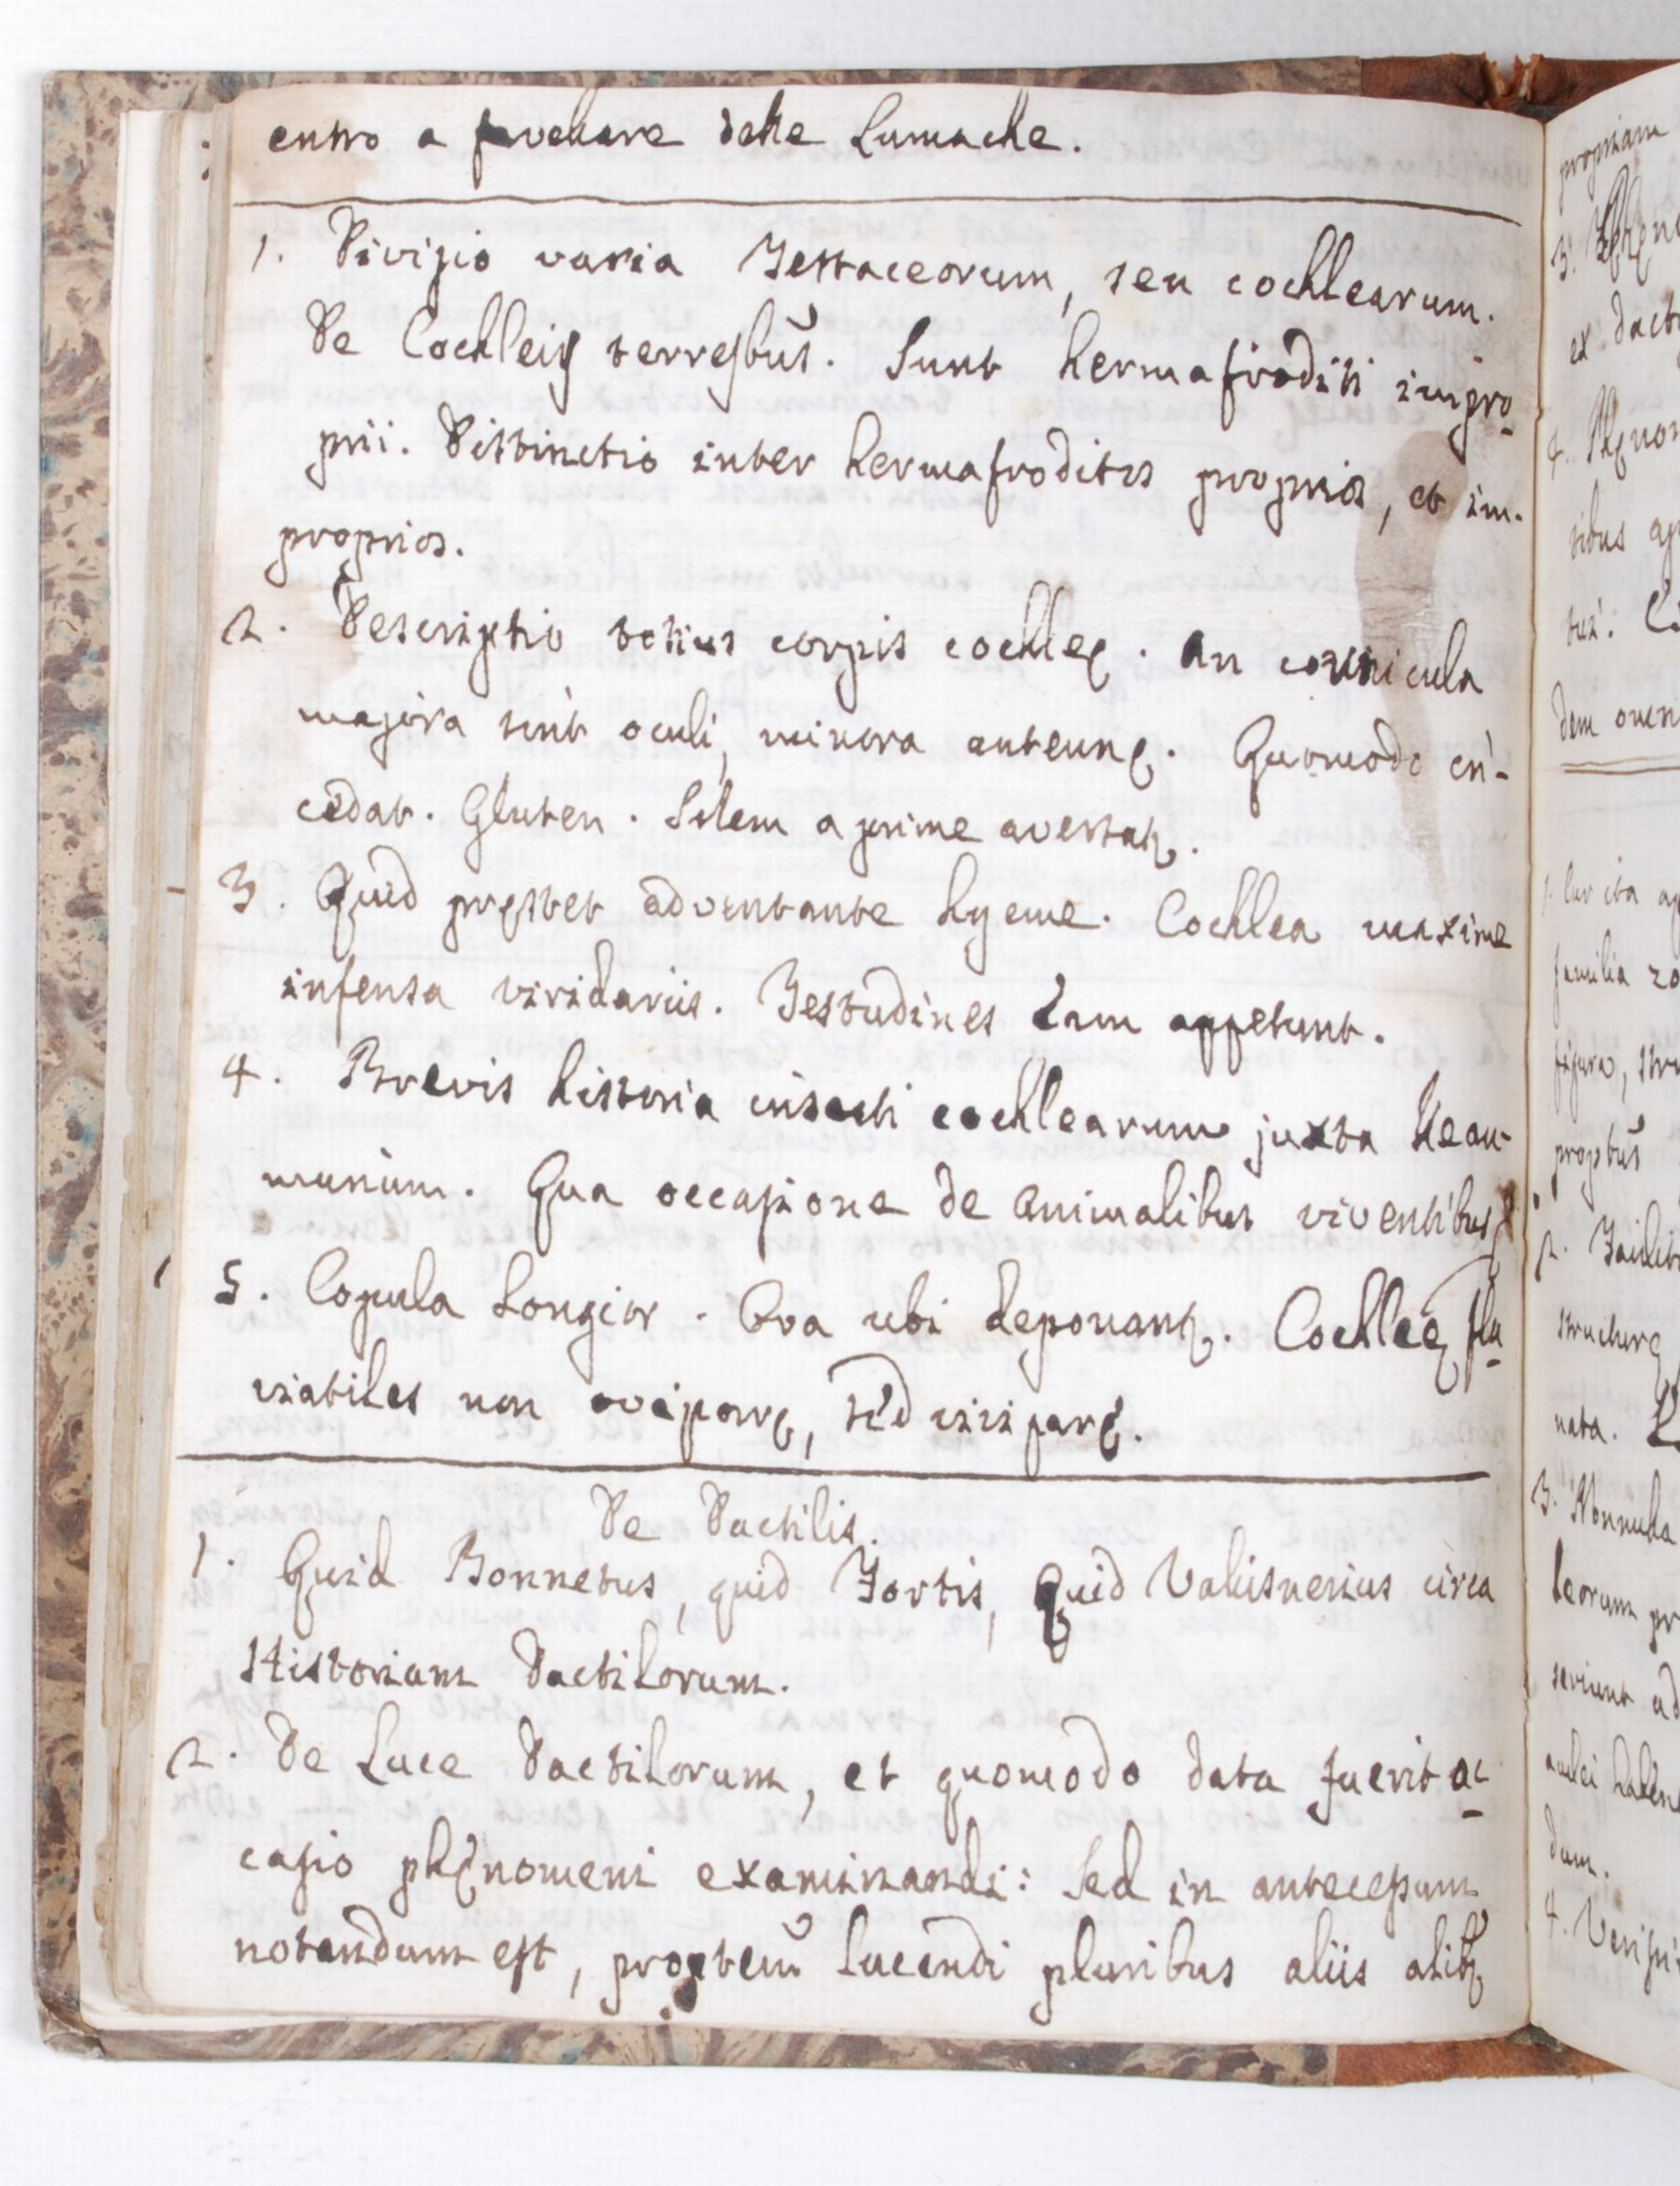 entro a favellare delle Lumache.
1. Divisio varia Testaceorum, seu cochlearum.
De Cochleis terresbus. Sunt hermafroditi impro
prii. Distinctio inter hermafroditos proprios, et im-
proprios.
2. Descriptio totius corpis cochleę. An cornicula
majora sint oculi, minora antennę. Quomodo in-
cedat. Gluten. Solem apprime
3. Quid pręstet adventante hyeme. Cochlea maxime
infensa viridariis. Testudines eam appetunt.
4. Brevis historia insecti cochlearum juxta Reau-
murium. Qua occasione de animalibus viventibus
5. Copula longior. Ova ubi Cochleę flu
viatiles non oviparę, sed viviparę.
De Dactilis.
1. Quid Bonnetus, quid Fortis, quid Valisnerius circa
Historiam Dactilorum.
2. De Luce Dactilorum, et quomodo data fuerit oc
casio phęnomeni examinandi: Sed in antecessum
notandum est, proptem lucendi pluribus aliis
propriam
3.
ex
4.
sibus
dem
1.
familia
figura,
propbus
2.
structurę
nata.
3. Nonnulla
seriunt ad
dum.
4.